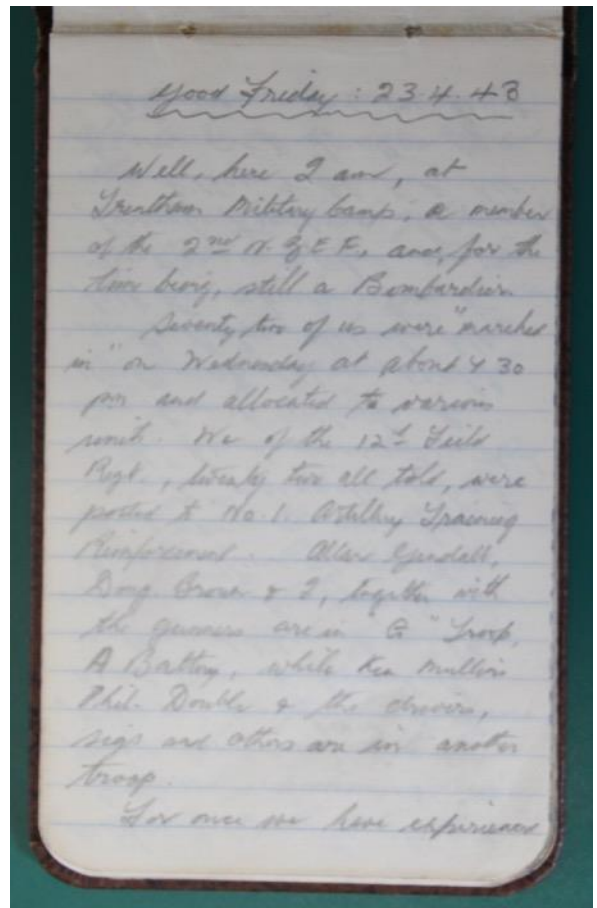 Good Friday : 23.4.43
Well, here I am, at
Trentham Military Camp, a member
of the 2nd N.Z.E.F., and, for the
time being, still a Bombardier.
Seventy two of us were "marched
in" on Wednesday at about 4 30
pm and allocated to various
units. We of the 12th Field
Regt., twenty two all told, were
posted to No. 1. Artillery Training
Reinforcement. Allan
Doug. Brown & I, together with
the gunners are in "G" Troop,
A Battery, while Ken Mullins
Phil. Double & the drivers,
sigs and others are in another
troop.
For once we have experienced